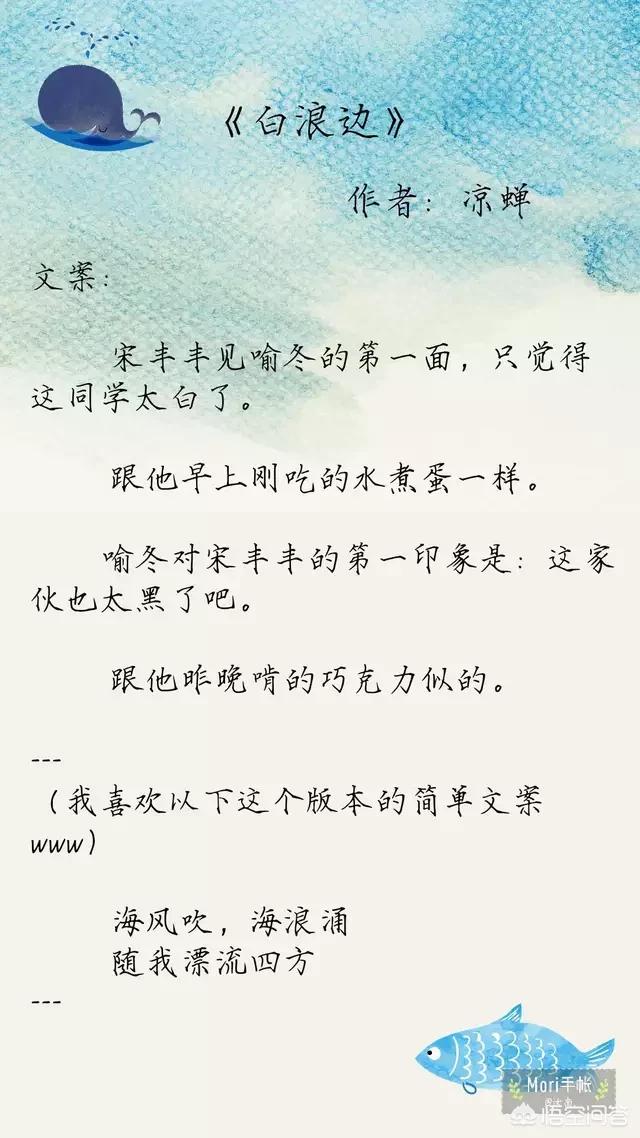 《白浪边》
作者：凉蝉
文案：
宋丰丰见喻冬的第一面，只觉得
这同学太白了。
跟他早上刚吃的水煮蛋一样。
喻冬对宋丰丰的第一印象是：这家
伙也太黑了吧。
跟他昨晚啃的巧克力似的。
---
（我喜欢以下这个版本的简单文案
www）
海风吹，海浪涌
随我漂流四方
---
Mori手帐
悟空问答